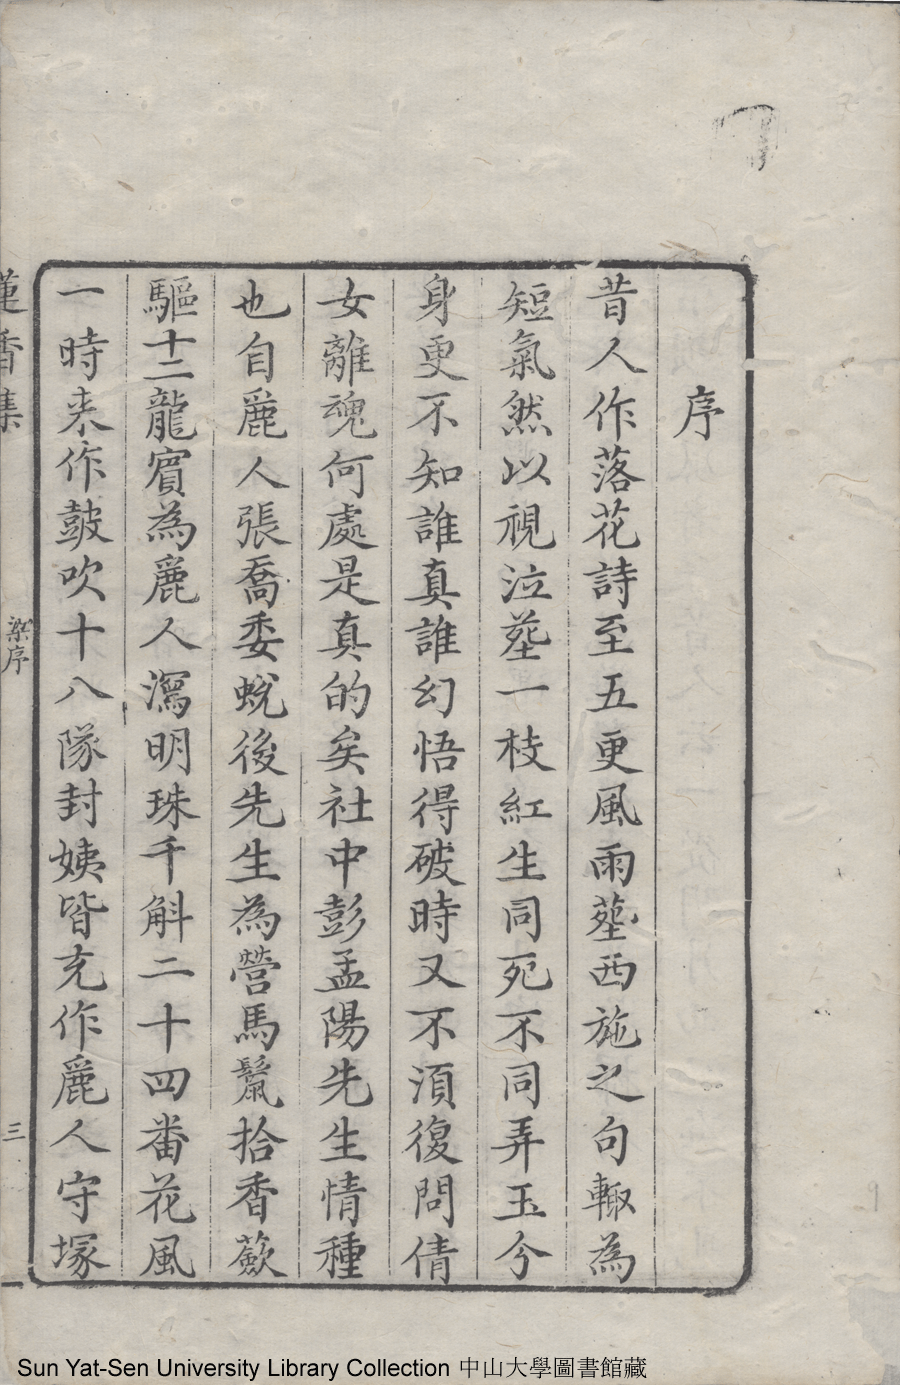 序
昔人作落花詩至五更風雨塟西施之句輙為
短氣然以視泣塟一枝紅生同死不同弄玉今
身更不知誰真誰幻悟得破時又不湏復問倩
女離魂何處是真的矣社中彭孟陽先生情種
也自麗人張喬委蛻後先生為營馬鬛拾香蘞
驅十二龍賓為麗人瀉明珠千斛二十四番花風
一時来作皷吹十八隊封姨皆充作麗人守塚
蓮香集
梁序
三
Sun Yat-Sen University Library Collection 中山大學圖書館藏